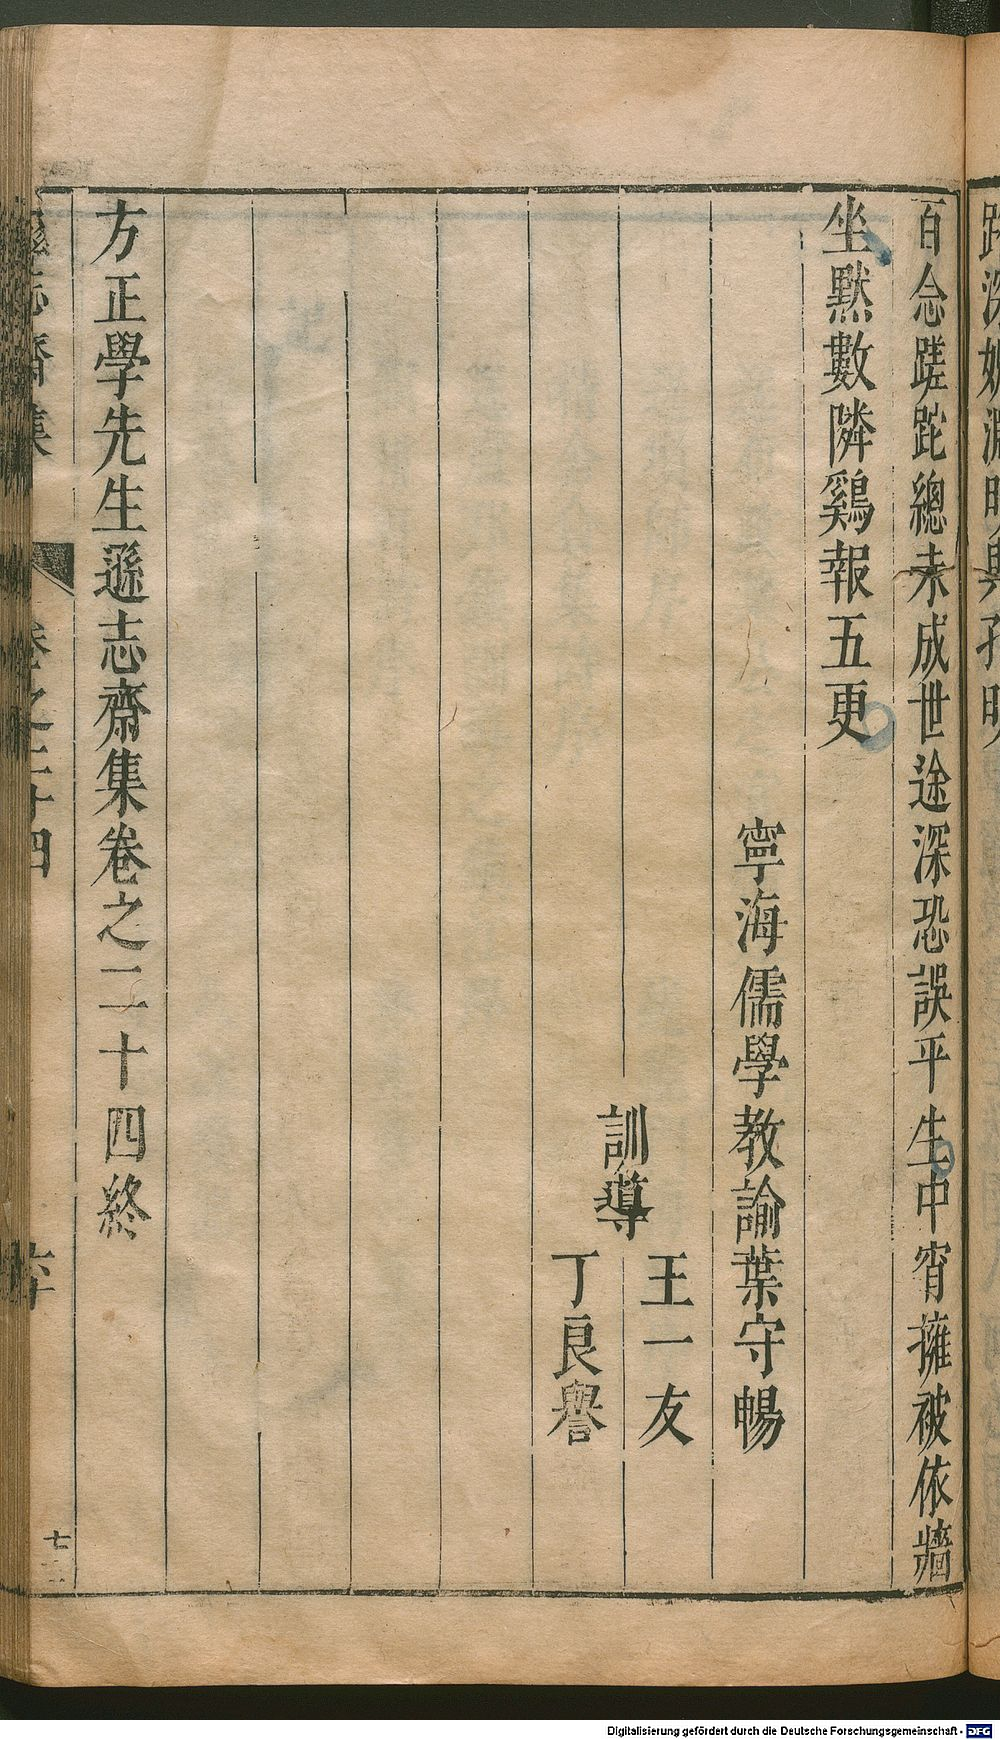 百念蹉跎總未成世途深恐誤平生中宵擁被依牆
坐黙數隣鷄報五更
寧海儒學教諭葉守暢
訓導
王一友
丁良譽
方正學先生遜志齋集卷之二十四終
志齋集
卷之二十四
Digitalisierung gefördert durch die Deutsche Forschungsgemeinschaft - DFG